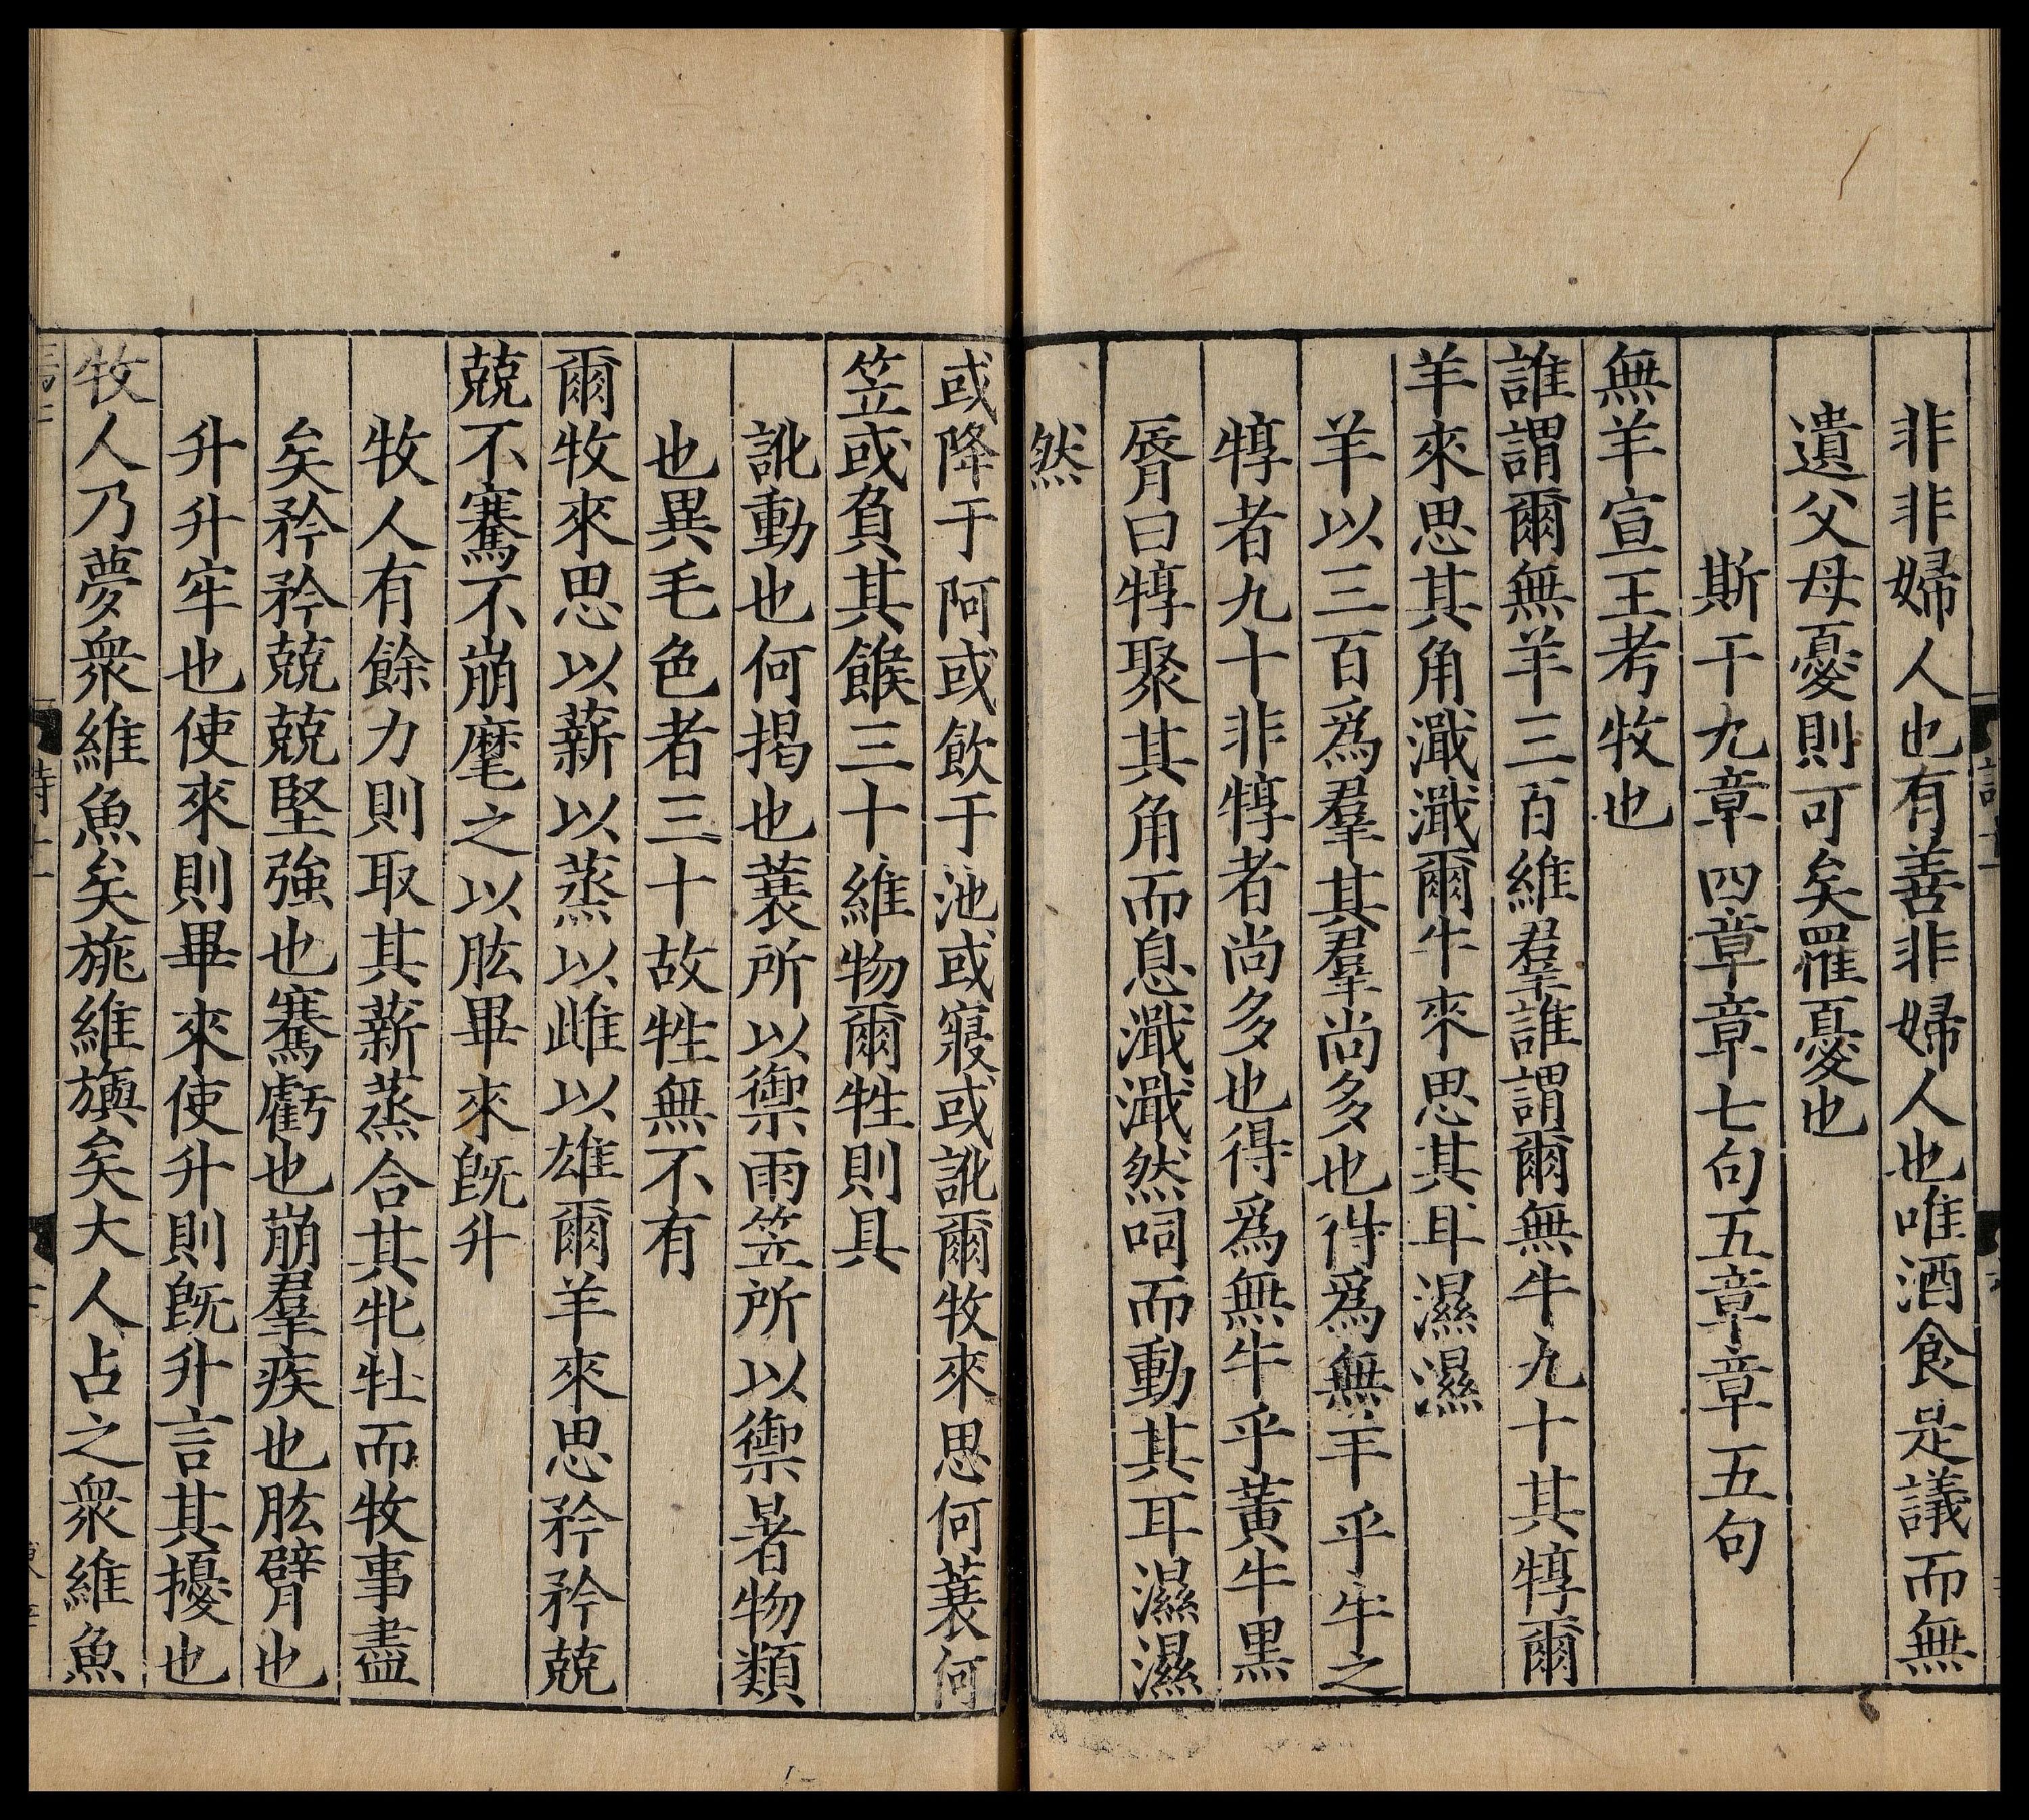 非非婦人也有善非婦人也唯酒食是議而無
遺父母憂則可矣罹憂也
斯干九章四章章七句五章章五句
無羊宣王考牧也
誰謂爾無羊三百維羣誰謂爾無牛九十其犉爾
羊來思其角濈濈爾牛來思其耳濕濕
羊以三百爲羣其羣尚多也得爲無羊乎牛之
犉者九十非犉者尚多也得爲無牛乎黃牛黑
脣曰犉聚其角而息濈濈然呞而動其耳濕濕
然
或降于阿或飲于池或寢或訛爾牧來思何蓑何
笠或負其餱三十維物爾牲則具
訛動也何揭也蓑所以禦雨笠所以禦暑物類
也異毛色者三十故牲無不有
爾牧來思以薪以蒸以雌以雄爾羊來思矜矜兢
兢不騫不崩麾之以肱畢來旣升
牧人有餘力則取其薪蒸合其牝牡而牧事盡
矣矜矜兢兢堅強也騫虧也崩羣疾也肱臂也
升升牢也使來則畢來使升則旣升言其擾也
牧人乃夢衆維魚矣旐維旟矣大人占之衆維魚